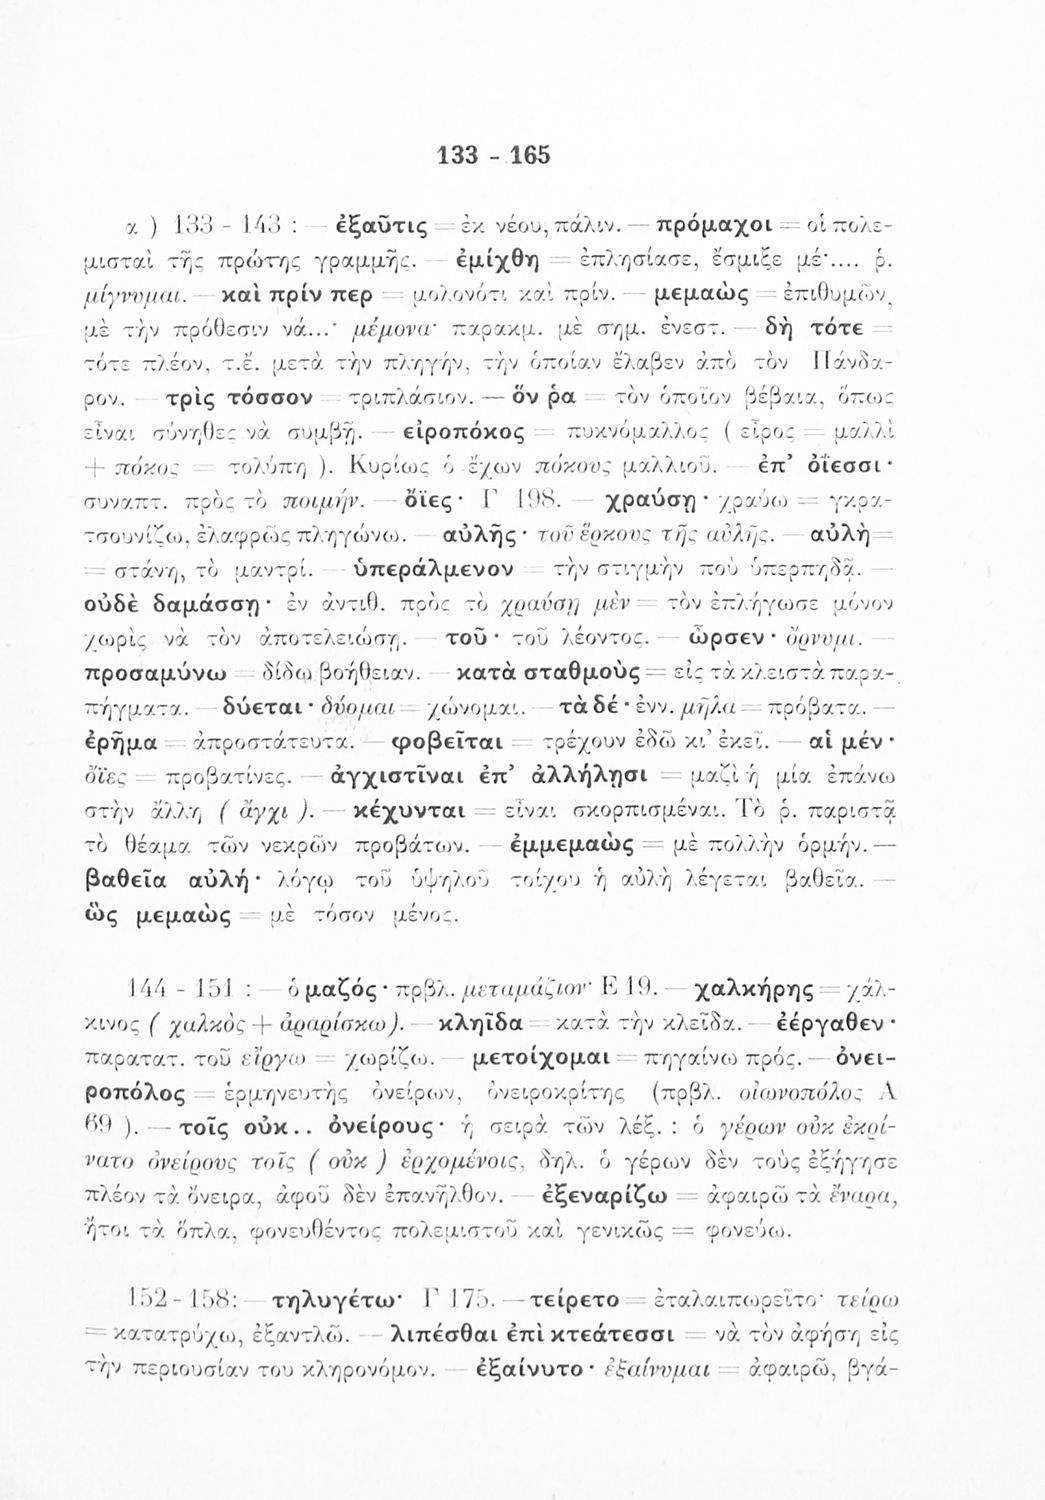 133 - 165
α ) 133 - 143 : — ἐξαῦτις = ἐκ νέου, πάλιν. — πρόμαχοι = οἱ πολε-
μισταὶ τῆς πρώτης γραμμῆς. — ἐμίχθη = ἐπλησίασε, ἔσμιξε μέ·.... ῥ.
μίγνυμαι. — καὶ πρίν περ = μολονότι καὶ πρίν. — μεμαὼς = ἐπιθυμῶν,
μὲ τὴν πρόθεσιν νά...· μέμονα· παρακμ. μὲ σημ. ἐνεστ. — δὴ τότε =
τότε πλέον, τ.ἔ. μετὰ τὴν πληγήν, τὴν ὁποίαν ἔλαβεν ἀπὸ τὸν Πάνδα-
ρον. — τρὶς τόσσον = τριπλάσιον. — ὅν ῥα = τὸν ὁποῖον βέβαια, ὅπως
εἶναι σύνηθες νὰ συμβῇ. — εἰροπόκος = πυκνόμαλλος ( εἶρος = μαλλὶ
+ πόκος = τολύπη ). Κυρίως ὁ ἔχων πόκους μαλλιοῦ. — ἐπ’ ὀΐεσσι ·
συναπτ. πρὸς τὸ ποιμήν. — ὄϊες · Γ 198. — χραύσῃ · χραύω = γκρα-
τσουνίζω, ἐλαφρῶς πληγώνω. — αὐλῆς · τοῦ ἕρκους τῆς αὐλῆς. — αὐλὴ =
= στάνη, τὸ μαντρί. — ὑπεράλμενον = τὴν στιγμὴν ποὺ ὑπερπηδᾷ. —
οὐδὲ δαμάσσῃ · ἐν ἀντιθ. πρὸς τὸ χραύσῃ μὲν = τὸν ἐπλήγωσε μόνον
χωρὶς νὰ τὸν ἀποτελειώσῃ. — τοῦ · τοῦ λέοντος. — ὦρσεν · ὄρνυμι. —
προσαμύνω = δίδω βοήθειαν. — κατὰ σταθμοὺς = εἰς τὰ κλειστὰ παρα-
πήγματα. — δύεται · δύομαι = χώνομαι. — τὰ δέ · ἐνν. μῆλα = πρόβατα. —
ἐρῆμα = ἀπροστάτευτα. — φοβεῖται = τρέχουν ἐδῶ κι’ ἐκεῖ. — αἱ μέν ·
ὄϊες = προβατίνες. — ἀγχιστῖναι ἐπ’ ἀλλήλῃσι = μαζὶ ἡ μία ἐπάνω
στὴν ἄλλη ( ἄγχι ). — κέχυνται = εἶναι σκορπισμέναι. Τὸ ῥ. παριστᾷ
τὸ θέαμα τῶν νεκρῶν προβάτων. — ἐμμεμαὼς = μὲ πολλὴν ὁρμήν. —
βαθεῖα αὐλή · λόγῳ τοῦ ὑψηλοῦ τοίχου ἡ αὐλὴ λέγεται βαθεῖα. —
ὣς μεμαὼς = μὲ τόσον μένος.
144 - 151 : — ὁ μαζός · πρβλ. μεταμάζιον· Ε 19. — χαλκήρης = χάλ-
κινος ( χαλκὸς + ἀραρίσκω ). — κληῖδα = κατὰ τὴν κλεῖδα. — ἐέργαθεν ·
παρατατ. τοῦ εἴργω = χωρίζω. — μετοίχομαι = πηγαίνω πρός. — ὀνει-
ροπόλος = ἑρμηνευτὴς ὀνείρων, ὀνειροκρίτης (πρβλ. οἰωνοπόλος Α
69 ). — τοῖς οὐκ.. ὀνείρους · ἡ σειρὰ τῶν λέξ. : ὁ γέρων οὐκ ἐκρί-
νατο ὀνείρους τοῖς ( οὐκ ) ἐρχομένοις, δηλ. ὁ γέρων δὲν τοὺς ἐξήγησε
πλέον τὰ ὄνειρα, ἀφοῦ δὲν ἐπανῆλθον. — ἐξεναρίζω = ἀφαιρῶ τὰ ἔναρα,
ἤτοι τὰ ὅπλα, φονευθέντος πολεμιστοῦ καὶ γενικῶς = φονεύω.
152 - 158: — τηλυγέτω · Γ 175. — τείρετο = ἐταλαιπωρεῖτο· τείρω
= κατατρύχω, ἐξαντλῶ. — λιπέσθαι ἐπὶ κτεάτεσσι = νὰ τὸν ἀφήσῃ εἰς
τὴν περιουσίαν του κληρονόμον. — ἐξαίνυτο · ἐξαίνυμαι = ἀφαιρῶ, βγά-